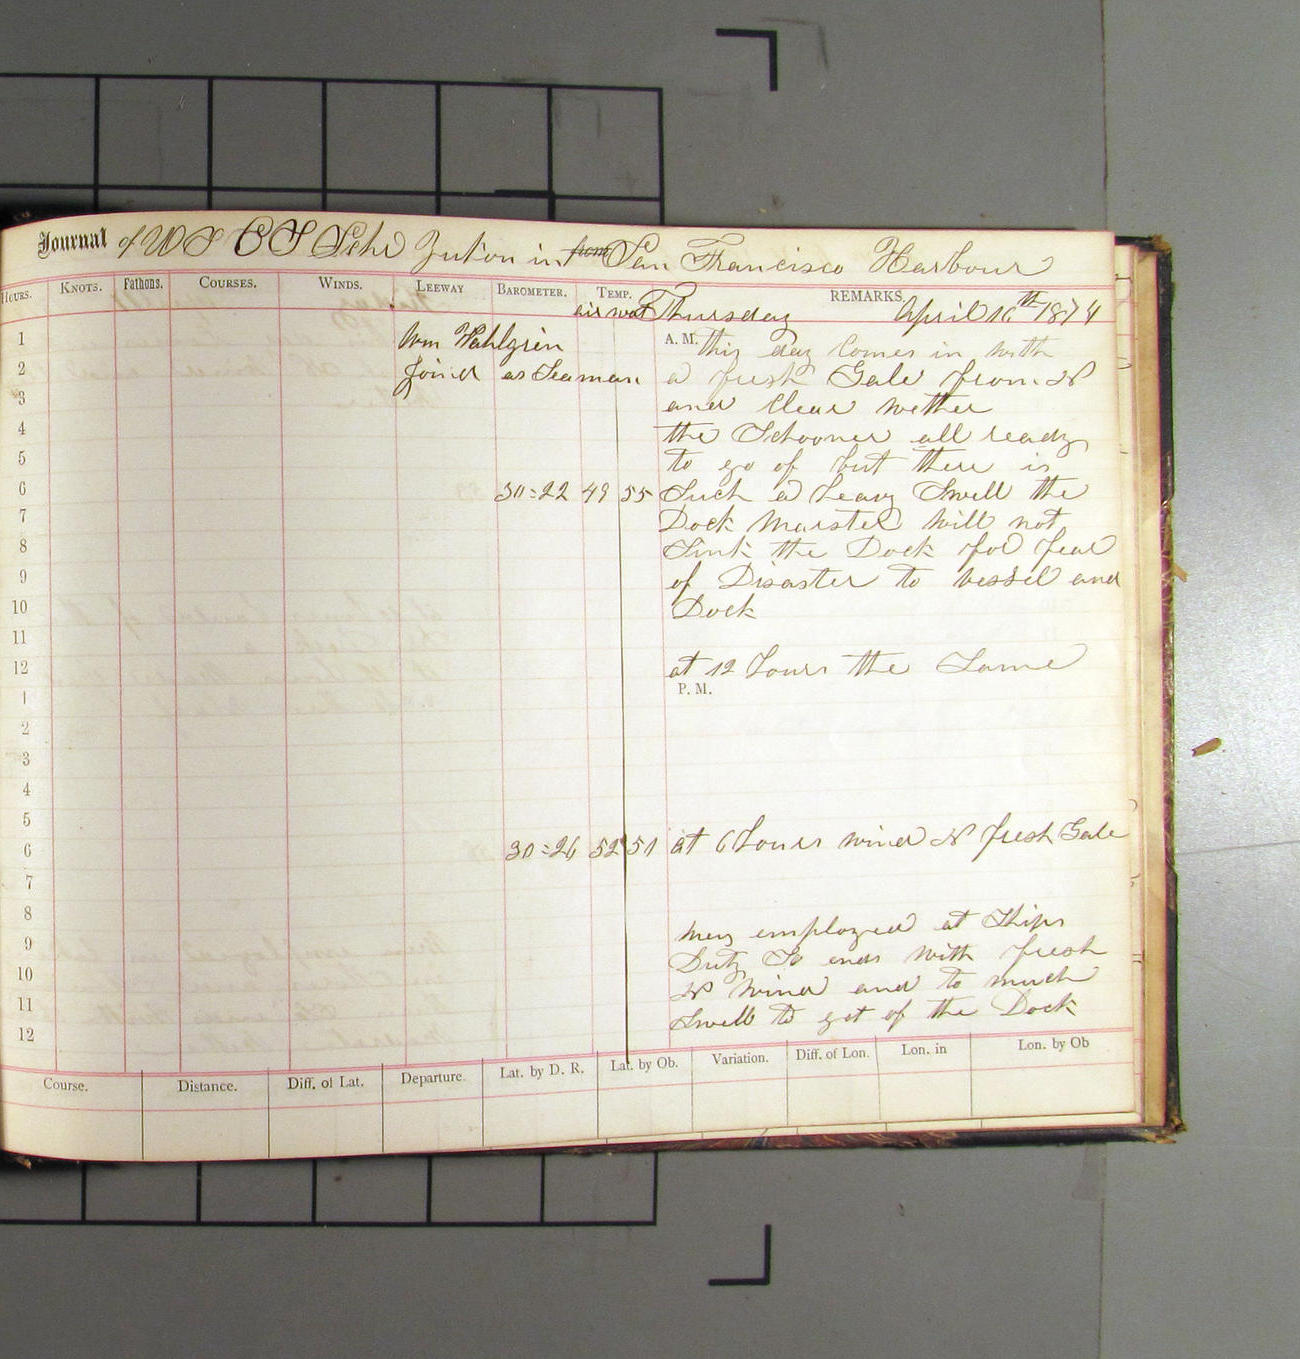 Journal of U S C S Schr Yukon in from San Francisco Harbour
HOURS. KNOTS. Fathoms. COURSES. WINDS. LEEWAY BAROMETER. TEMP. REMARKS.
air wat Thursday April 16th 1874
1 Wm Wahlgren A. M. this day Comes in with
2 Joind as Seaman a fresh Gale from N
3 and Clear wether
4 the Schooner all ready
5 to go of but there is
6 30=22 49 55 Such a heavy Swell the
7 Dock Marster will not
8 Sink the Dock for fear
9 of Disaster to vessel and
10 Dock
11
12 at 12 hours the Same
1 P. M.
2
3
4
5
6 30=26 52 51 at 6 hours wind N fresh Gale
7
8 men employed at Ships
9 Duty So ends with fresh
10 N wind and to much
11 Swell to get of the Dock
12
Course. Distance. Diff. of Lat. Departure. Lat. by D. R. Lat. by Ob. Variation. Diff. of Lon. Lon. in Lon. by Ob